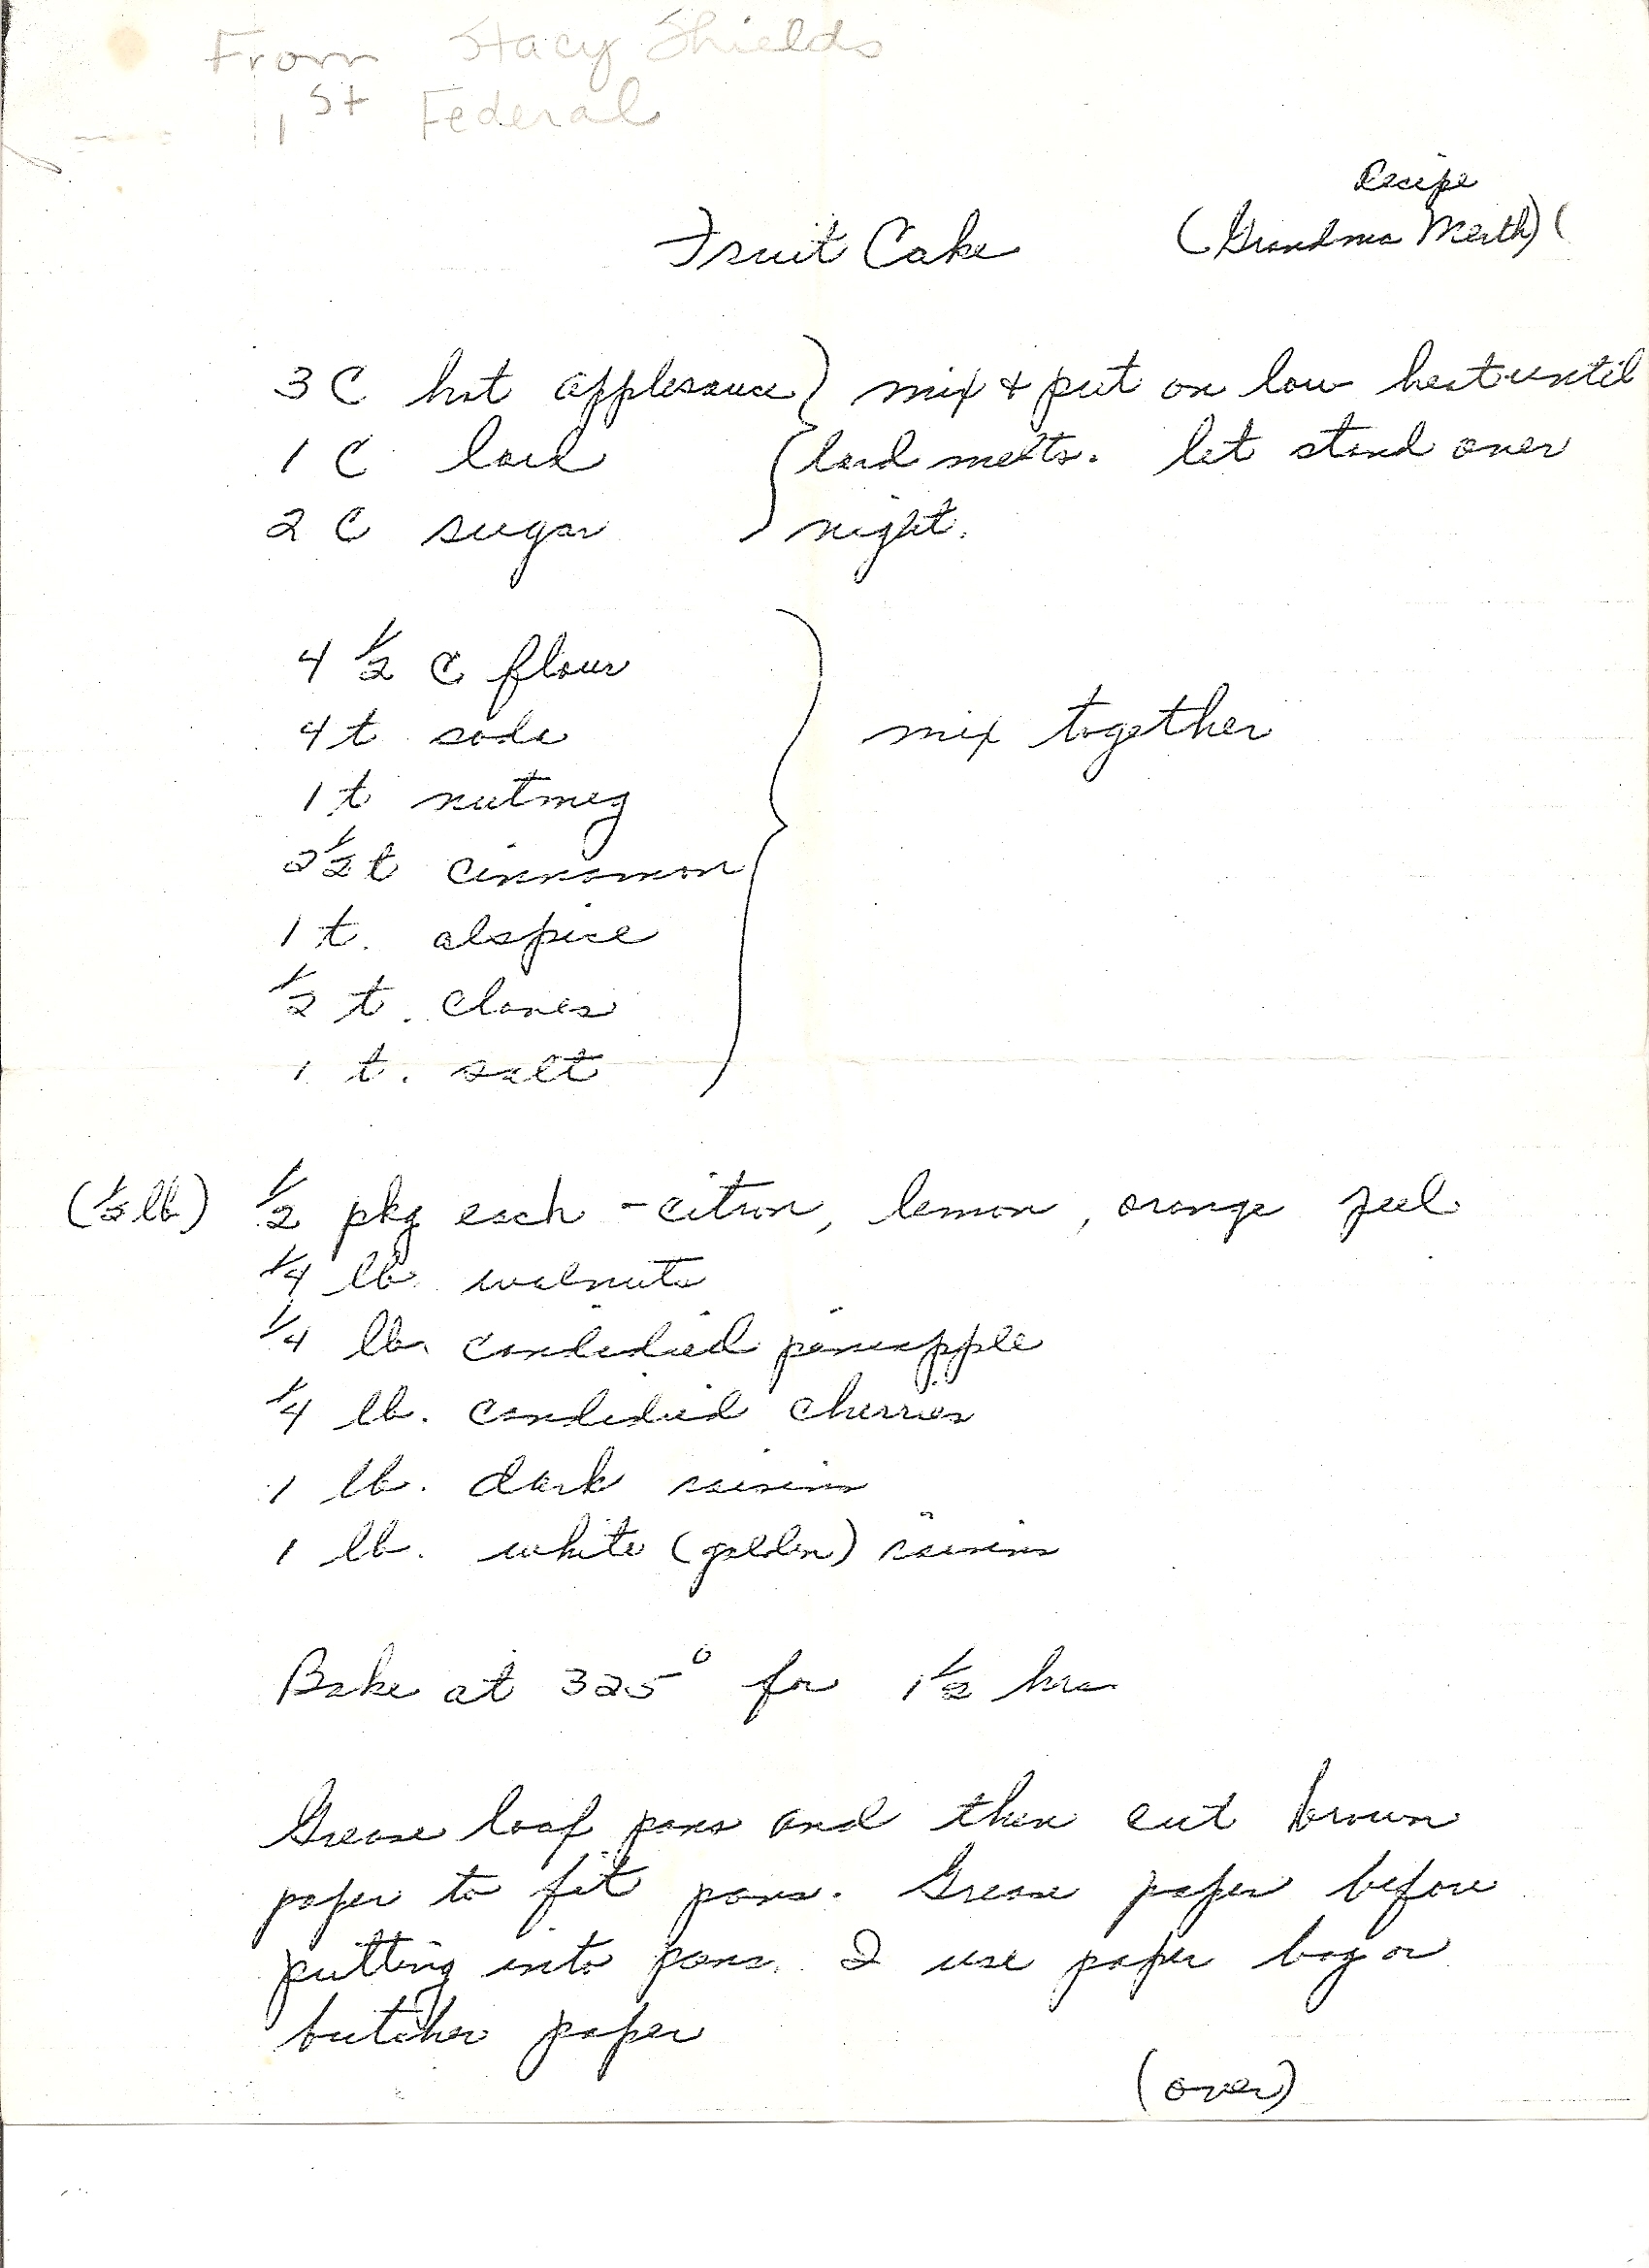 From Stacy Shields
1st Federal
Recipe
Fruit Cake (Grandma Merth) (
3 C hot applesauce } mix & put on low heat until
1 C lard lard melts. let stand over
2 C sugar night.
4 1/2 C flour
4 t soda mix together
1 t nutmeg
2 1/2 t cinnamon
1 t. alspice
1/2 t. cloves
1 t. salt
(1/2 lb) 1/2 pkg each - citron, lemon, orange peel
1/4 lb. walnuts
1/4 lb. candidied pineapple
1/4 lb. candidied cherries
1 lb. dark raisins
1 lb. white (golden) raisins
Bake at 325° for 1 1/2 hrs
Grease loaf pans and then cut brown
paper to fit pans. Grease paper before
putting into pans. I use paper bag or
butcher paper
(over)